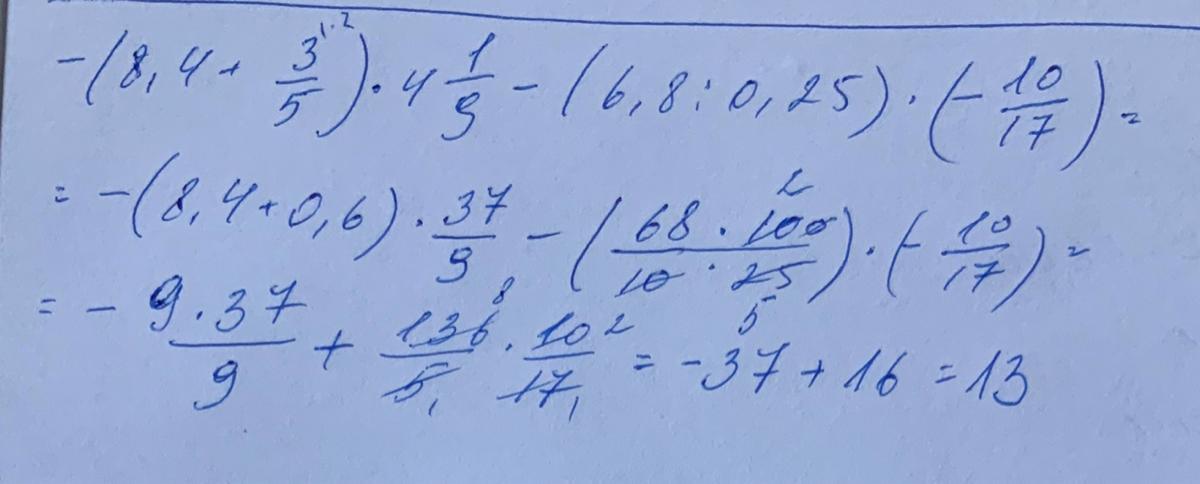 -(8,4+ 3^{1·2}/5)·4 1/9 - (6,8:0,25)·(-10/17)=
= -(8,4+0,6)·37/9 - (68·100 2/10·25 5)·(-10/17)=
= - 9·37/9 + 136 8/5 1·10 2/17 1 = -37+16=13